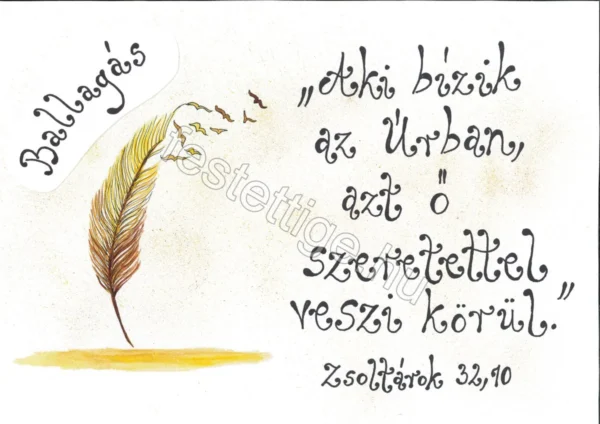 Ballagás
„Aki bízik
az Úrban,
azt Ő
szeretettel
veszi körül.”
Zsoltárok 32,10
festettige.hu